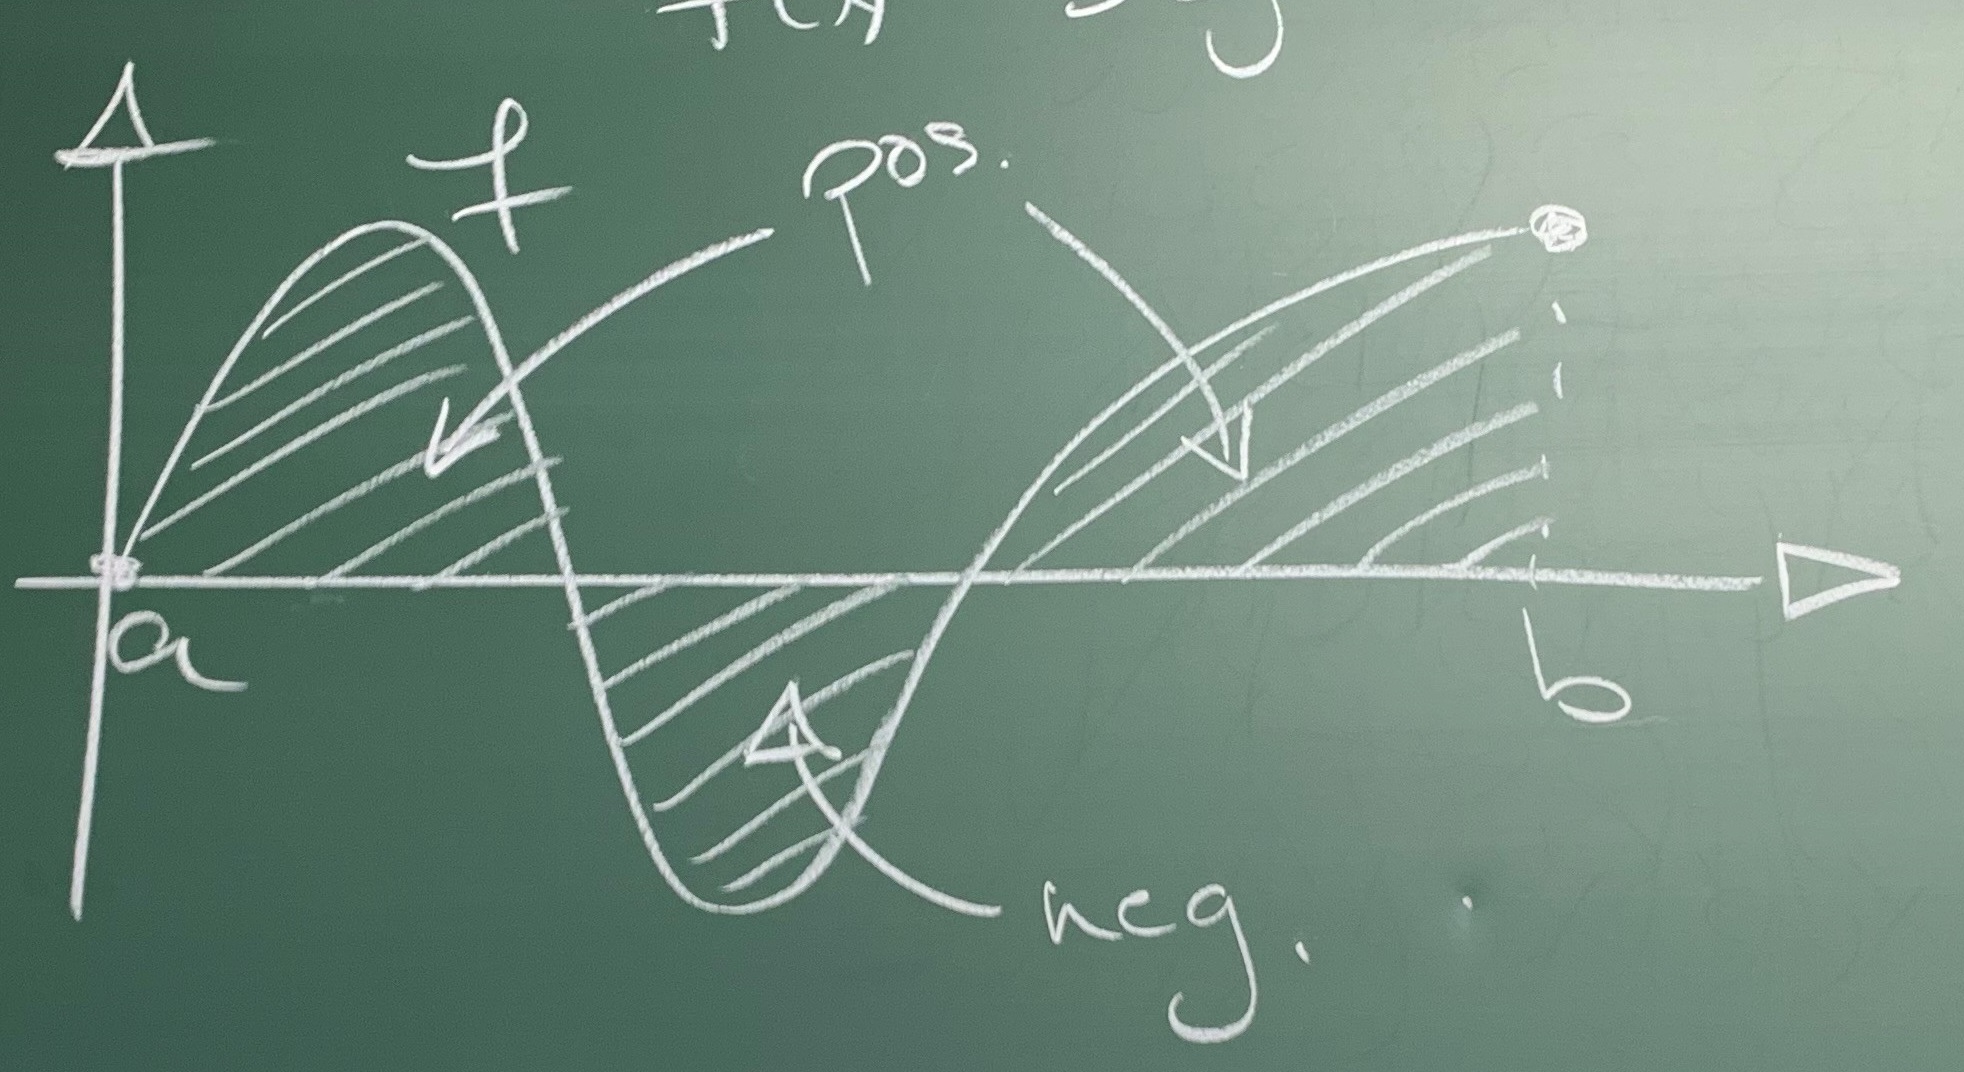 f
pos.
a
b
neg.